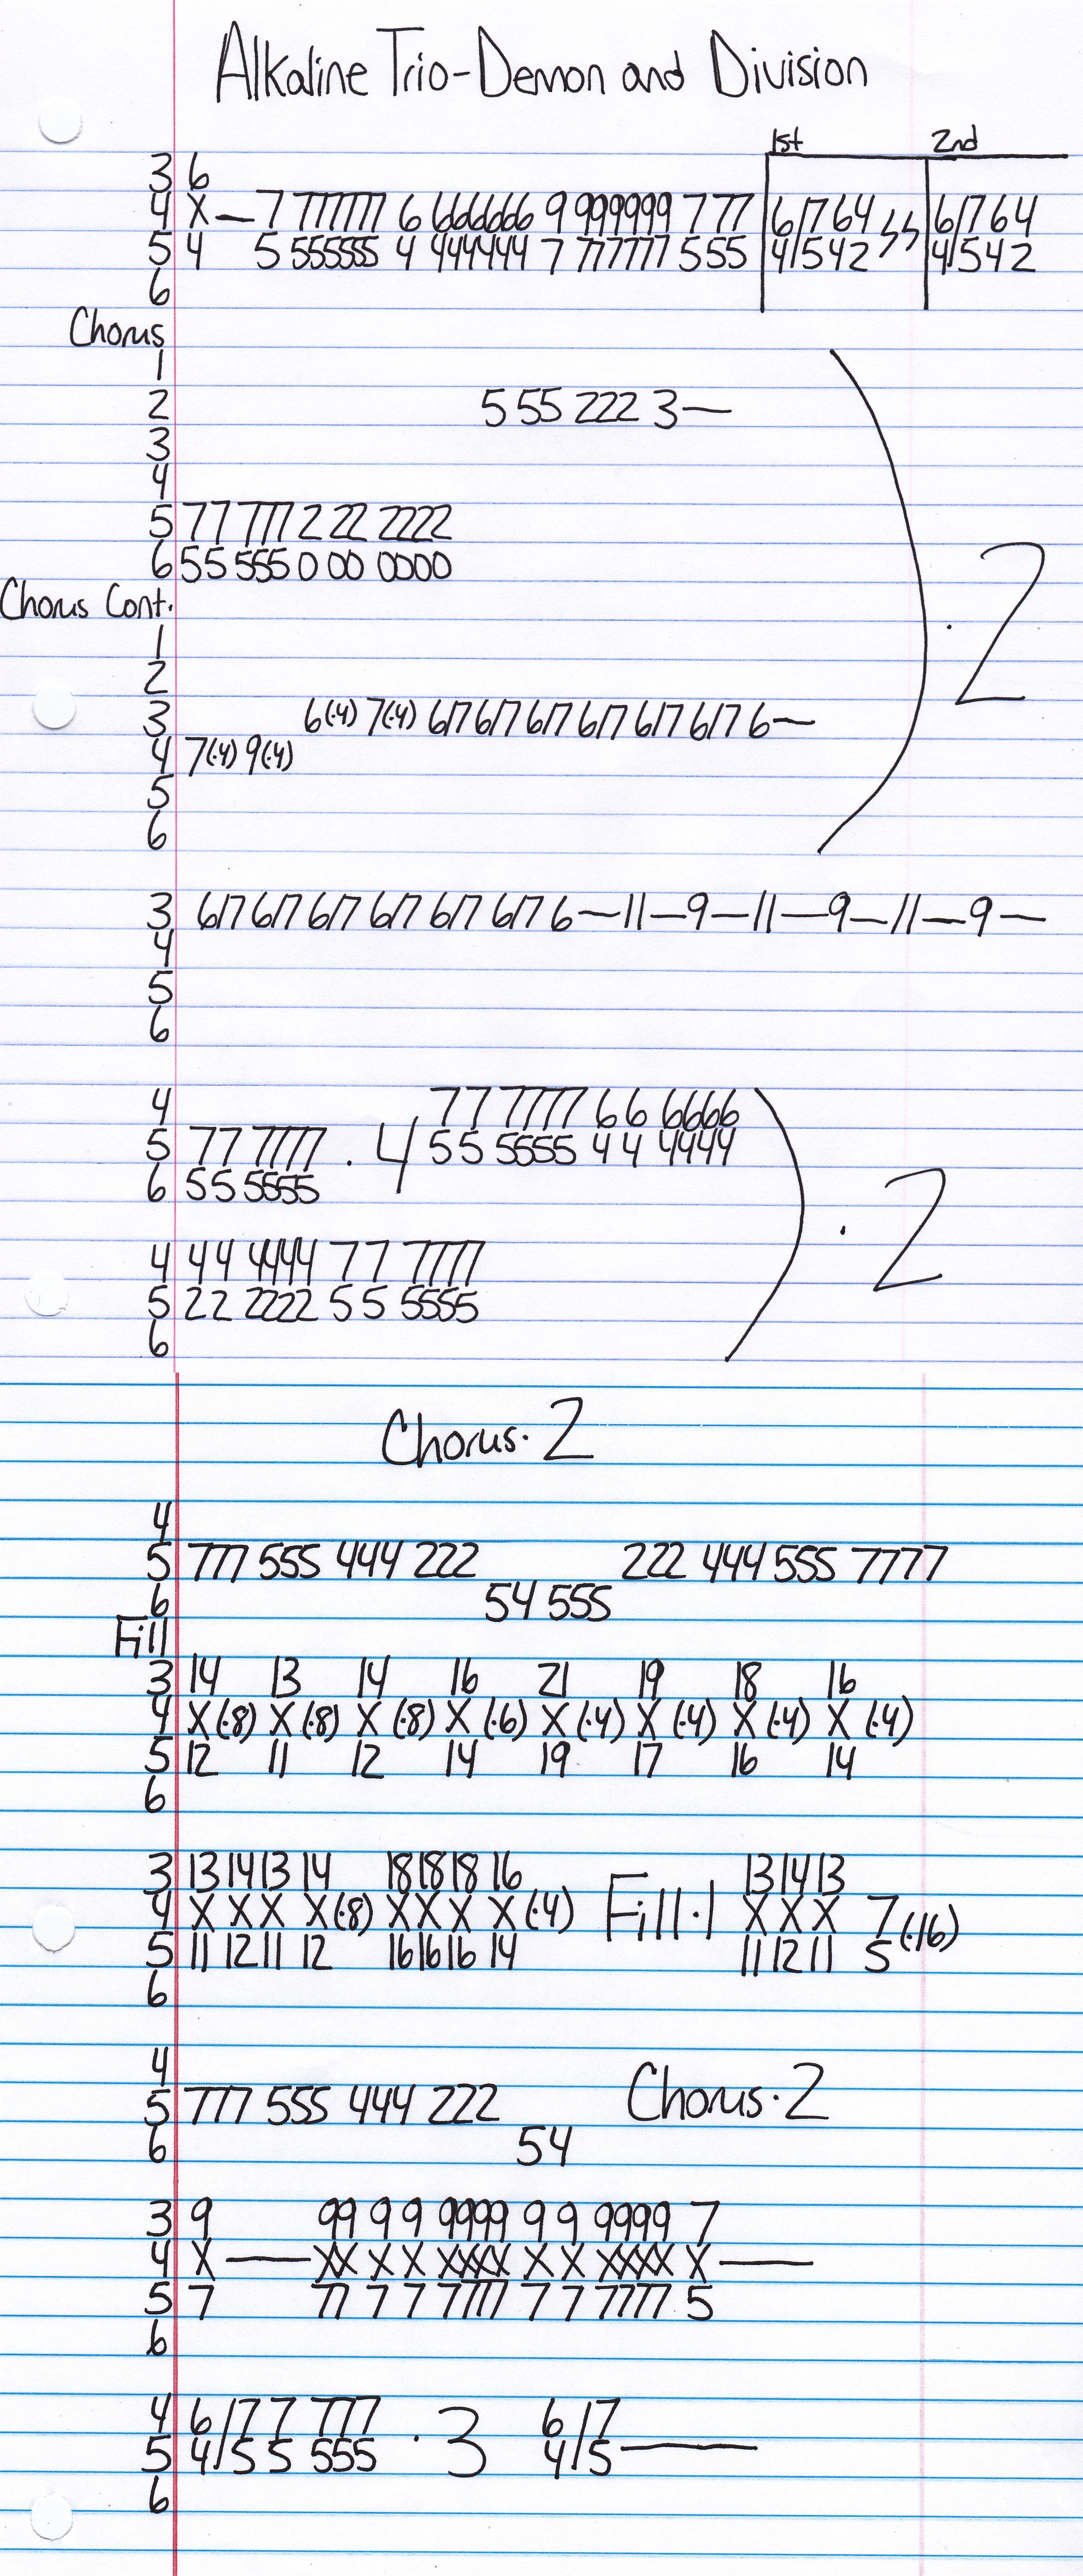 Alkaline Trio-Demon and Division
1st 2nd
3 6
4 X— 7 777777 6 666666 9 999999 7 77 6/764 6/764
5 4 5 555555 4 444444 7 777777 5 55 4/542 4/542
6
Chorus
1
2 5 55 222 3—
3
4
5 77 777 2 22 2222
6 55 555 0 00 0000
Chorus Cont.
1
2
3 6(·4) 7(·4) 6/7 6/7 6/7 6/7 6/7 6/7 6—
4 7(·4) 9(·4)
5
6
·2
3 6/7 6/7 6/7 6/7 6/7 6/7 6—11—9—11—9—11—9—
4
5
6
4 77 7777 66 6666
5 77 7777 ·4 55 5555 44 4444
6 55 5555
4 44 4444 77 7777
5 22 2222 55 5555
6
·2
Chorus·2
4
5 777 555 444 222 222 444 555 7777
6 54 555
Fill
3 14 13 14 16 21 19 18 16
4 X(·8) X(·8) X(·8) X(·6) X(·4) X(·4) X(·4) X(·4)
5 12 11 12 14 19 17 16 14
6
3 13 14 13 14 18 18 18 16 13 14 13
4 X X X X(·8) X X X X(·4) Fill·1 X X X 7(·16)
5 11 12 11 12 16 16 16 14 11 12 11 5
6
4
5 777 555 444 222 Chorus·2
6 54
3 9 99 9 9 9999 9 9 9999 7
4 X— XX X X XXXX X X XXXX X—
5 7 77 7 7 7777 7 7 7777 5
6
4 6/7 7 777 ·3 6/7
5 4/5 5 555 4/5—
6